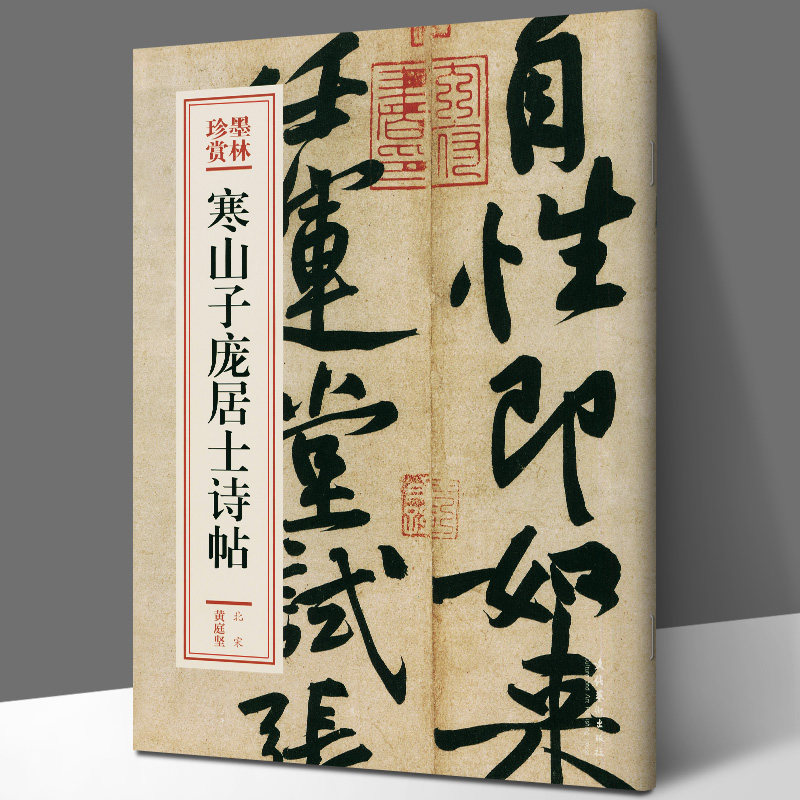 墨林
珍赏
寒山子庞居士诗帖
北宋
黄庭坚
自性即如来
任運堂試張